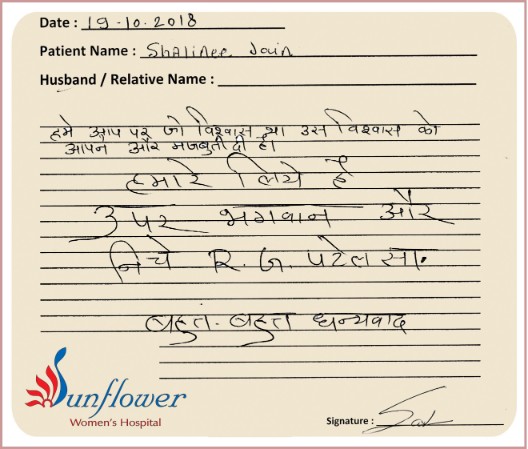 Date : 19-10-2018
Patient Name : Shalinee Jain
Husband / Relative Name :
हमे आप पर जो विश्वास था उस विश्वास को
आपने और मजबुती दी है।
हमारे लिये है
उपर भगवान और
निचे R. G. पटेल सा.
बहुत. बहुत धन्यवाद
Sunflower
Women's Hospital
Signature :